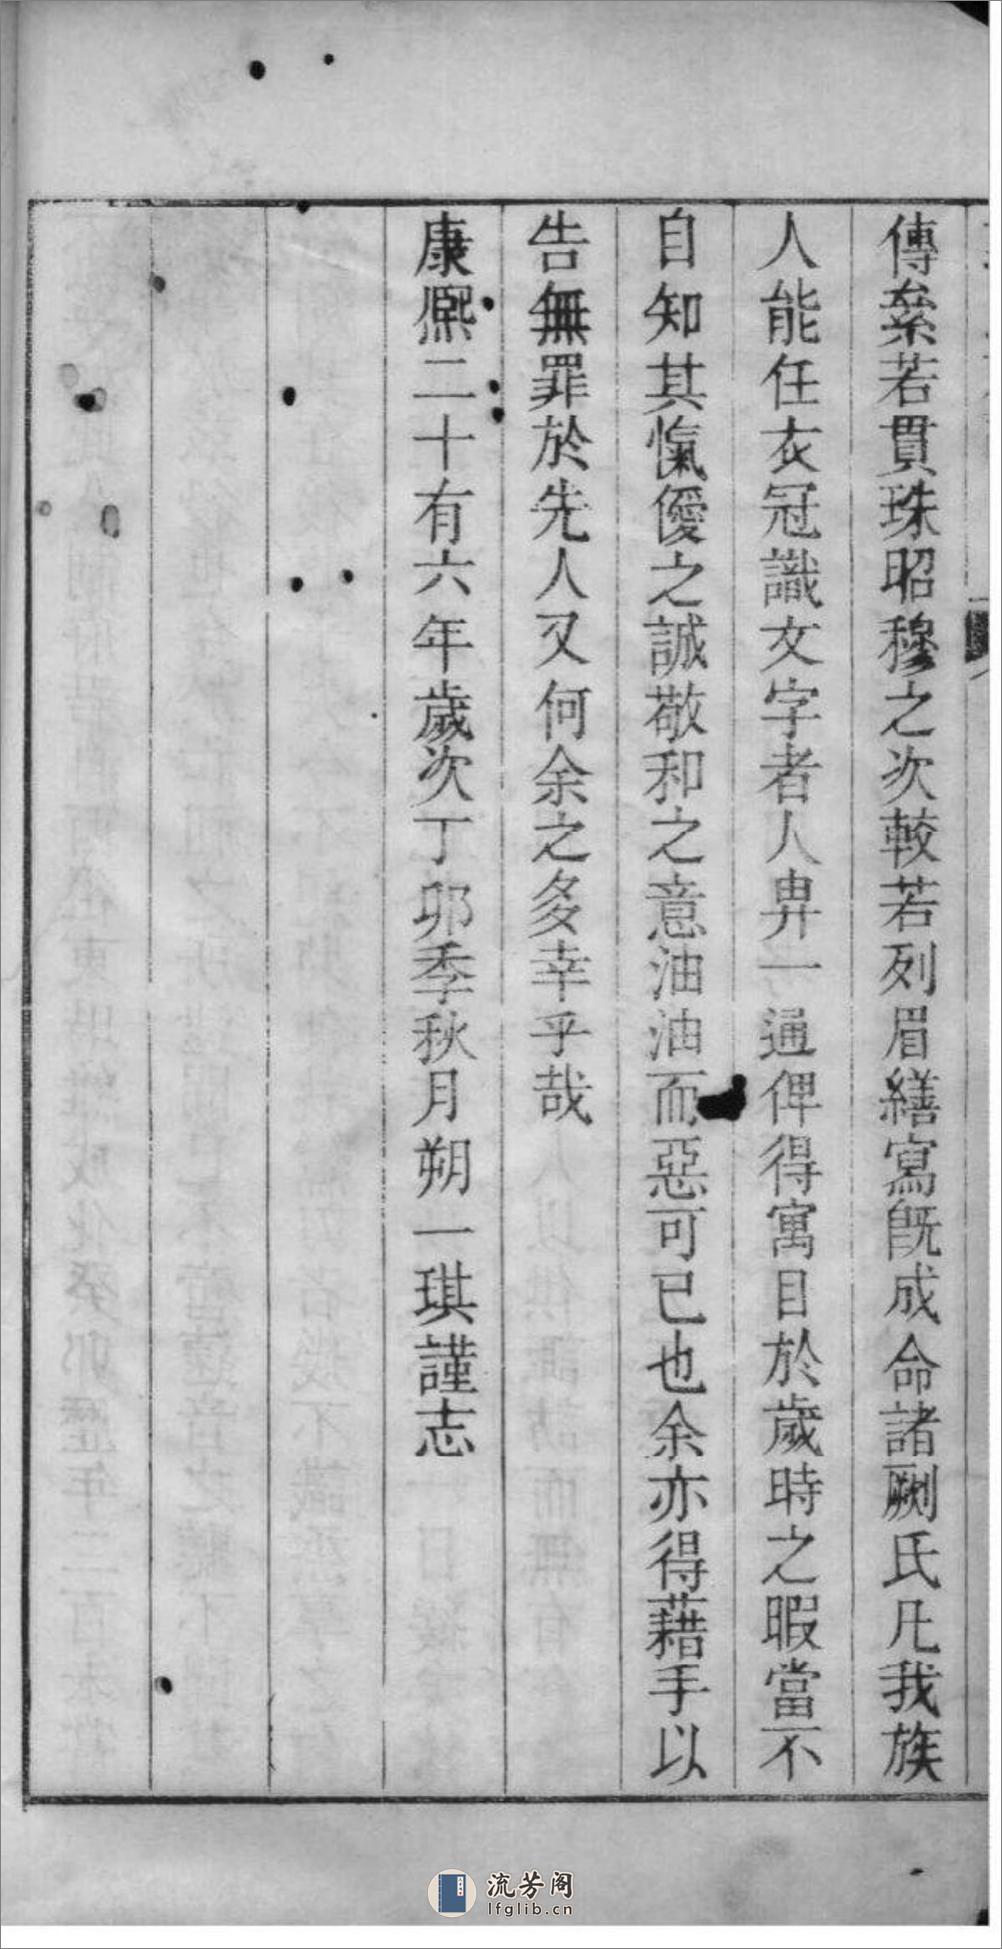 傳絫若貫珠昭穆之次較若列眉繕寫旣成命諸劂氏凡我族
人能任衣冠識文字者人畀一通俾得寓目於歲時之暇當不
自知其愾僾之誠敬和之意油油而惡可已也余亦得藉手以
告無罪於先人又何余之多幸乎哉
康熙二十有六年歲次丁卯季秋月朔一琪謹志
流芳阁
lfglib.cn